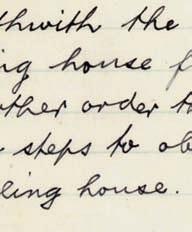 thwith the
ng house f
other order t
steps to ob
ling house.